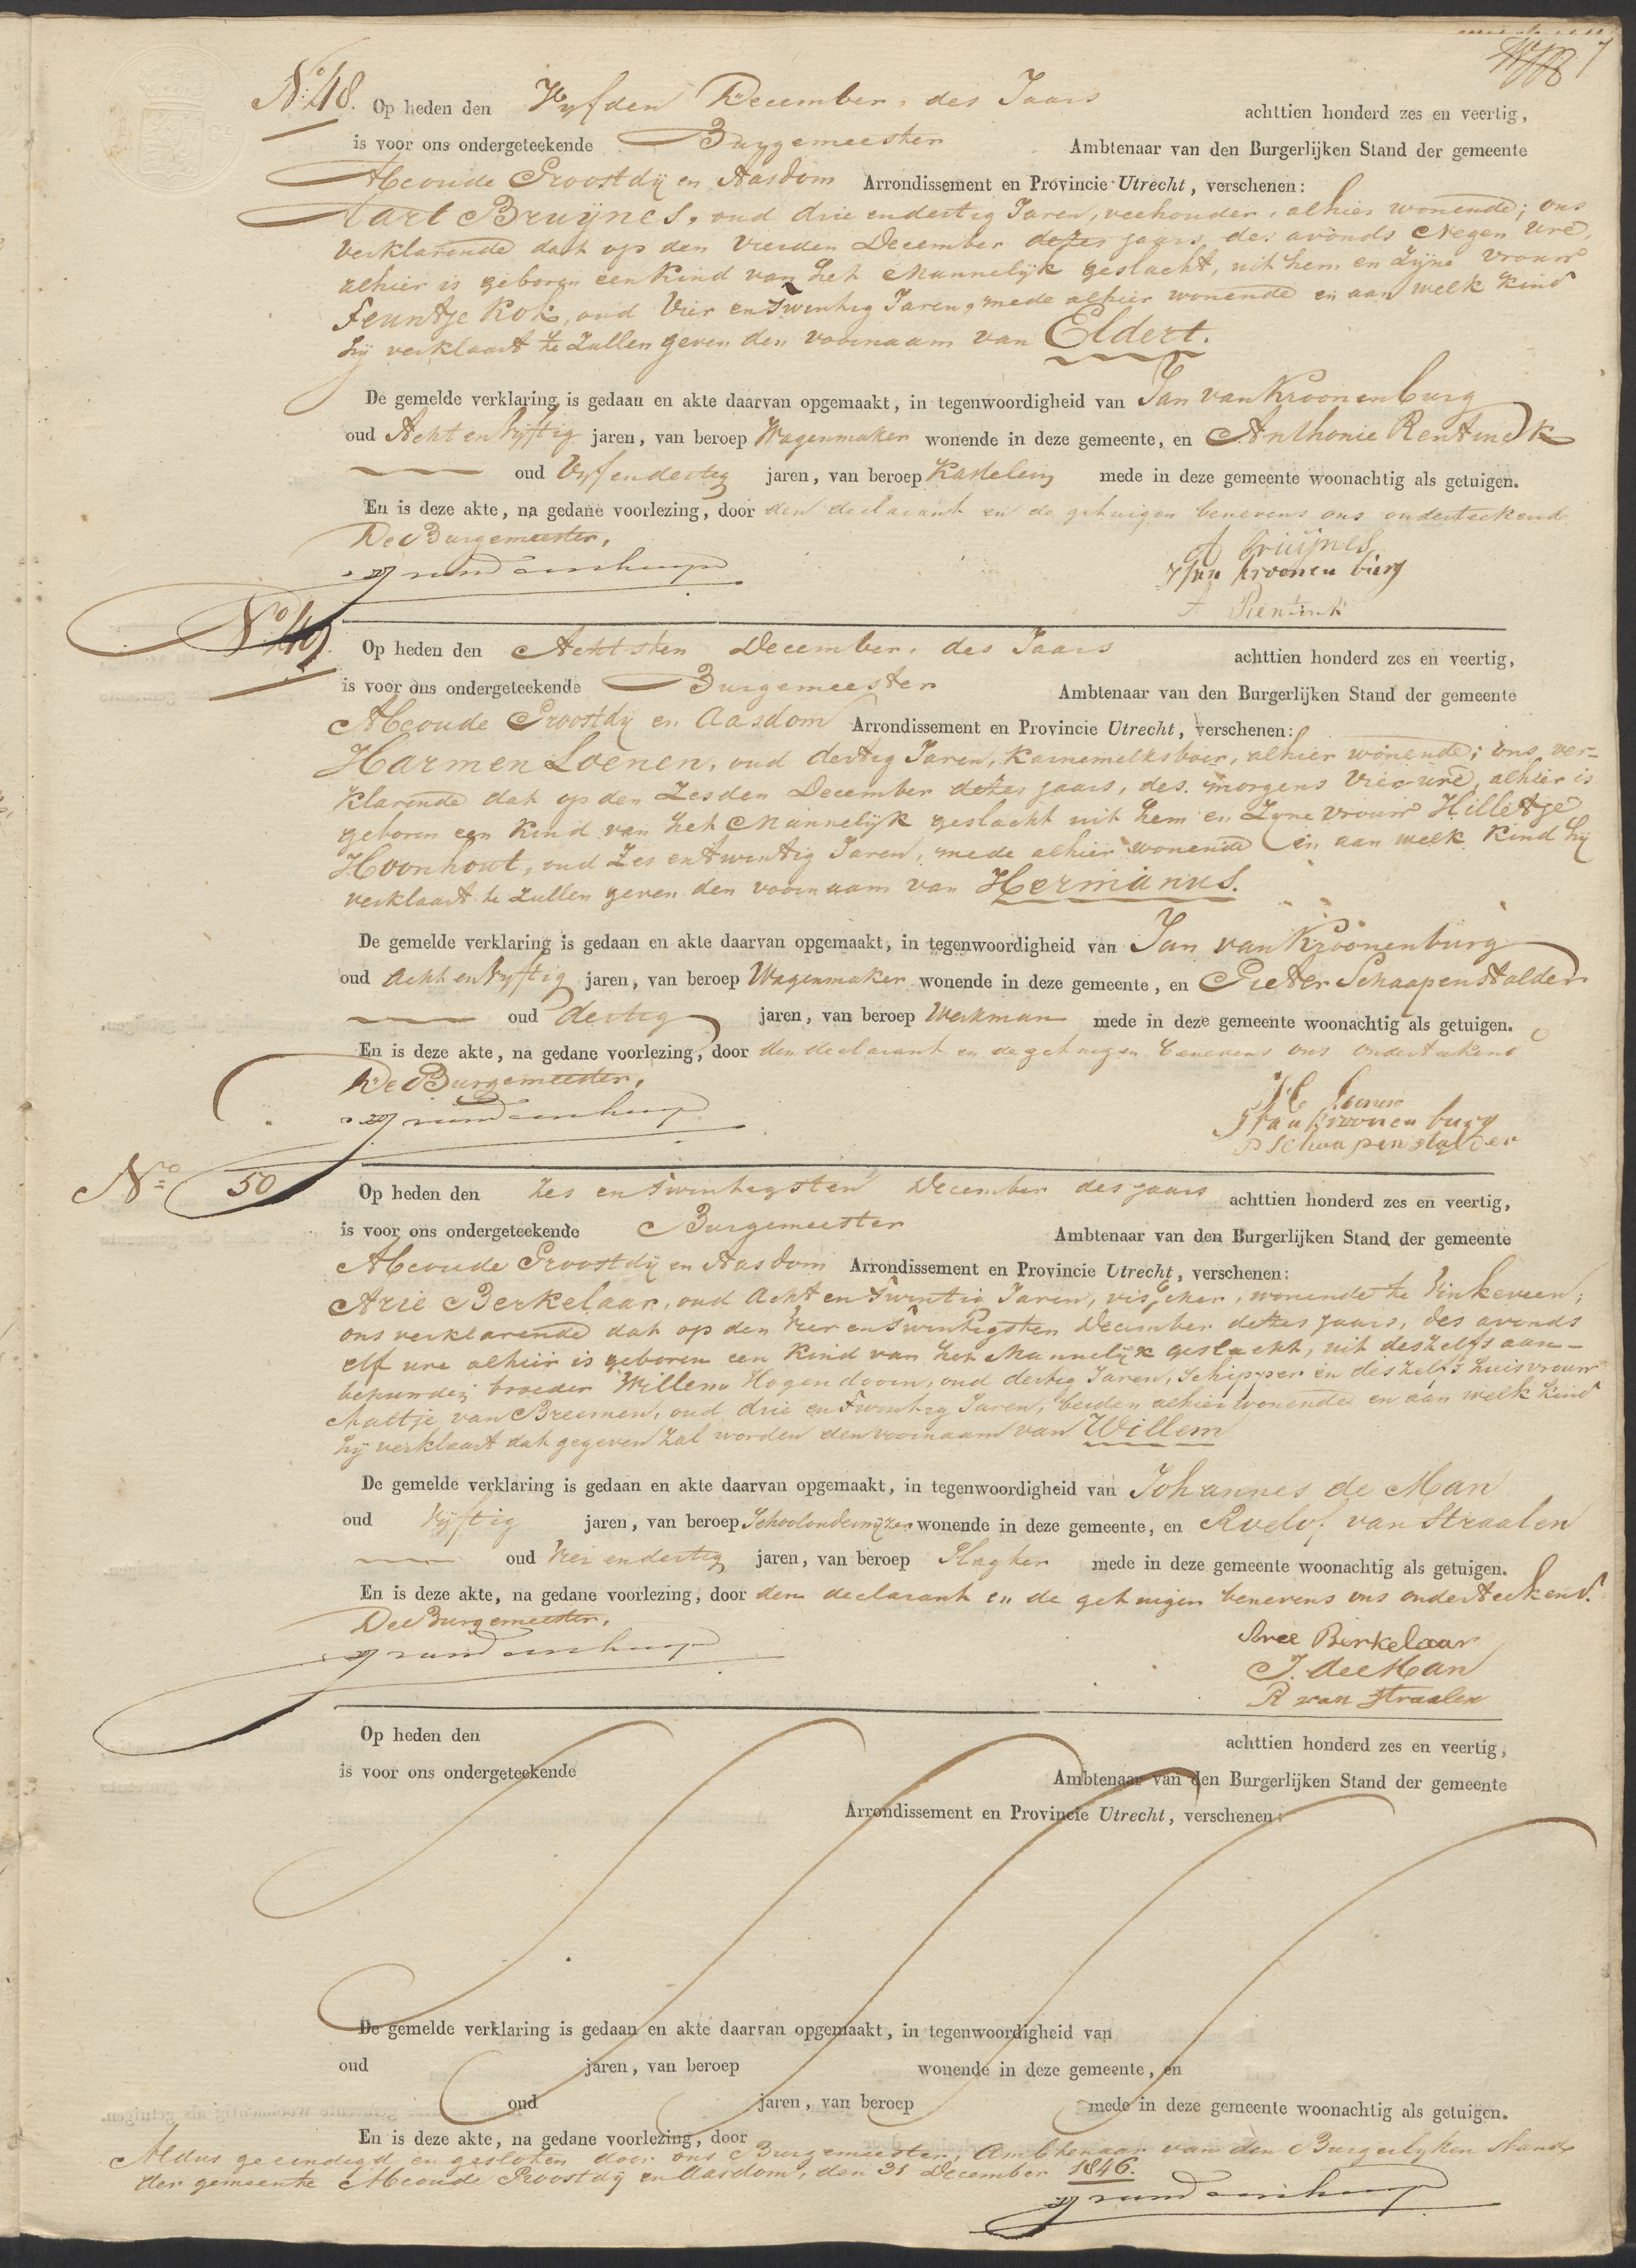 No. 48. Op heden den Vyfden December, des Jaars achttien honderd zes en veertig,
is voor ons ondergeteekende Burgemeester Ambtenaar van den Burgerlijken Stand der gemeente
Abcoude Proostdij en Aasdom Arrondissement en Provincie Utrecht, verschenen:
Aart Bruijnes, oud drie en dertig Jaren, veehouder, alhier wonende; ons
verklarende dat op den Vierden December dezes jaars, des avonds Negen ure,
alhier is geboren een Kind van het Mannelijk geslacht, uit hem en Zijne vrouw
Feuntje Kok, oud Vier en Twintig Jaren, mede alhier wonende en aan welk Kind
hij verklaart te Zullen geven den voornaam van Eldert.
De gemelde verklaring is gedaan en akte daarvan opgemaakt, in tegenwoordigheid van Jan van Kroonenburg
oud Acht en Vyftig jaren, van beroep Wagenmaker wonende in deze gemeente, en Anthonie Rentinck
oud Vyf en dertig jaren, van beroep Kastelein mede in deze gemeente woonachtig als getuigen.
En is deze akte, na gedane voorlezing, door den declarant en de getuigen benevens ons onderteekend
De Burgemeester,
A Bruijnes
J van kroonenburg
A Rentink
No. 49. Op heden den Achtsten December, des Jaars achttien honderd zes en veertig,
is voor ons ondergeteekende Burgemeester Ambtenaar van den Burgerlijken Stand der gemeente
Abcoude Proostdij en Aasdom Arrondissement en Provincie Utrecht, verschenen:
Harmen Loenen, oud dertig Jaren, Karnemelksboer, alhier wonende; ons ver-
klarende dat op den Zesden December dezes jaars, des morgens Vier ure, alhier is
geboren een Kind van het Mannelijk geslacht uit hem en Zyne vrouw Hilletje
Hoonhout, oud Zes en twintig Jaren, mede alhier wonende en aan welk Kind hij
verklaart te Zullen geven den voornaam van Hermanus.
De gemelde verklaring is gedaan en akte daarvan opgemaakt, in tegenwoordigheid van Jan van Kroonenburg
oud Acht en Vyftig jaren, van beroep Wagenmaker wonende in deze gemeente, en Pieter Schaapenstalder
oud dertig jaren, van beroep Werkman mede in deze gemeente woonachtig als getuigen.
En is deze akte, na gedane voorlezing, door den declarant en de getuigen benevens ons onderteekend
De Burgemeester,
H Loenen
J van kroonenburg
P Schaapenstalder
No. 50 Op heden den Zes en Twintigsten December des jaars achttien honderd zes en veertig,
is voor ons ondergeteekende Burgemeester Ambtenaar van den Burgerlijken Stand der gemeente
Abcoude Proostdij en Aasdom Arrondissement en Provincie Utrecht, verschenen:
Arie Berkelaar, oud Acht en Twintig Jaren, visscher, wonende te Vinkeveen;
ons verklarende dat op den Vier en Twintigsten December dezes jaars, des avonds
elf ure alhier is geboren een Kind van het Mannelijk geslacht, uit deszelfs aan-
behuwden broeder Willem Hogendoorn, oud dertig Jaren, Schipper en deszelfs huisvrouw
Maltje van Breemen, oud drie en Twintig Jaren, beiden alhier wonende en aan welk Kind
hij verklaart dat gegeven Zal worden den voornaam van Willem
De gemelde verklaring is gedaan en akte daarvan opgemaakt, in tegenwoordigheid van Johannes de Man
oud Vyftig jaren, van beroep Schoolonderwijzer wonende in deze gemeente, en Roelof van Straalen
oud Vier en dertig jaren, van beroep Slagter mede in deze gemeente woonachtig als getuigen.
En is deze akte, na gedane voorlezing, door den declarant en de getuigen benevens ons onderteekend.
De Burgemeester,
Aree Berkelaar
J. de Man
R van Straalen
Op heden den achttien honderd zes en veertig,
is voor ons ondergeteekende Ambtenaar van den Burgerlijken Stand der gemeente
Arrondissement en Provincie Utrecht, verschenen:
De gemelde verklaring is gedaan en akte daarvan opgemaakt, in tegenwoordigheid van
oud jaren, van beroep wonende in deze gemeente, en
oud jaren, van beroep mede in deze gemeente woonachtig als getuigen.
En is deze akte, na gedane voorlezing, door
Aldus geeindigd en gesloten door ons Burgemeester, Ambtenaar van den Burgerlyken Stand
der gemeente Abcoude Proostdij en Aasdom, den 31 December 1846.